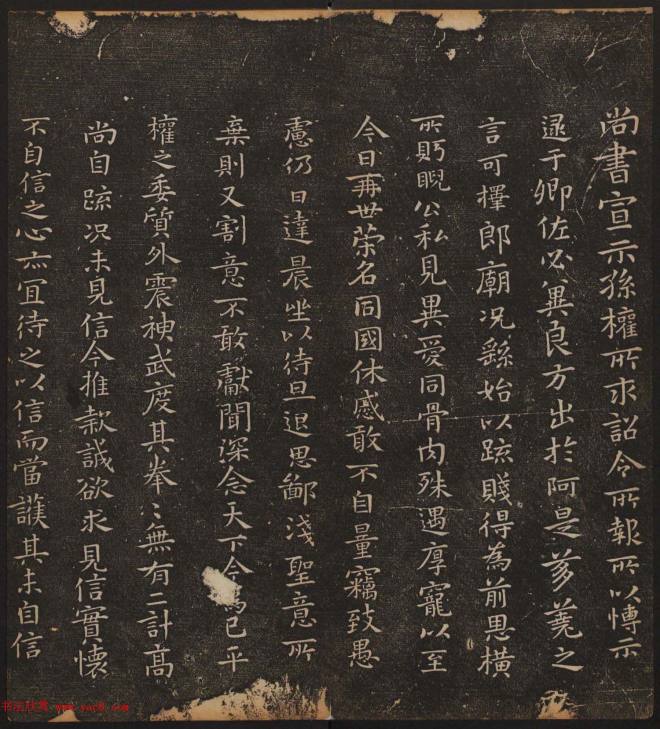 尚書宣示孫權所求詔令所報所以博示
逮于卿佐必冀良方出於阿是芻蕘之
言可擇郎廟況繇始以疏賤得為前恩橫
所盻睨公私見異愛同骨肉殊遇厚寵以至
今日再世榮名同國休慼敢不自量竊致愚
慮仍日達晨坐以待旦退思鄙淺聖意所
棄則又割意不敢獻聞深念天下今為已平
權之委質外震神武度其拳〻無有二計高
尚自疏況未見信今推款誠欲求見信實懷
不自信之心亦宜待之以信而當護其未自信
书法欣赏 www.yac8.com